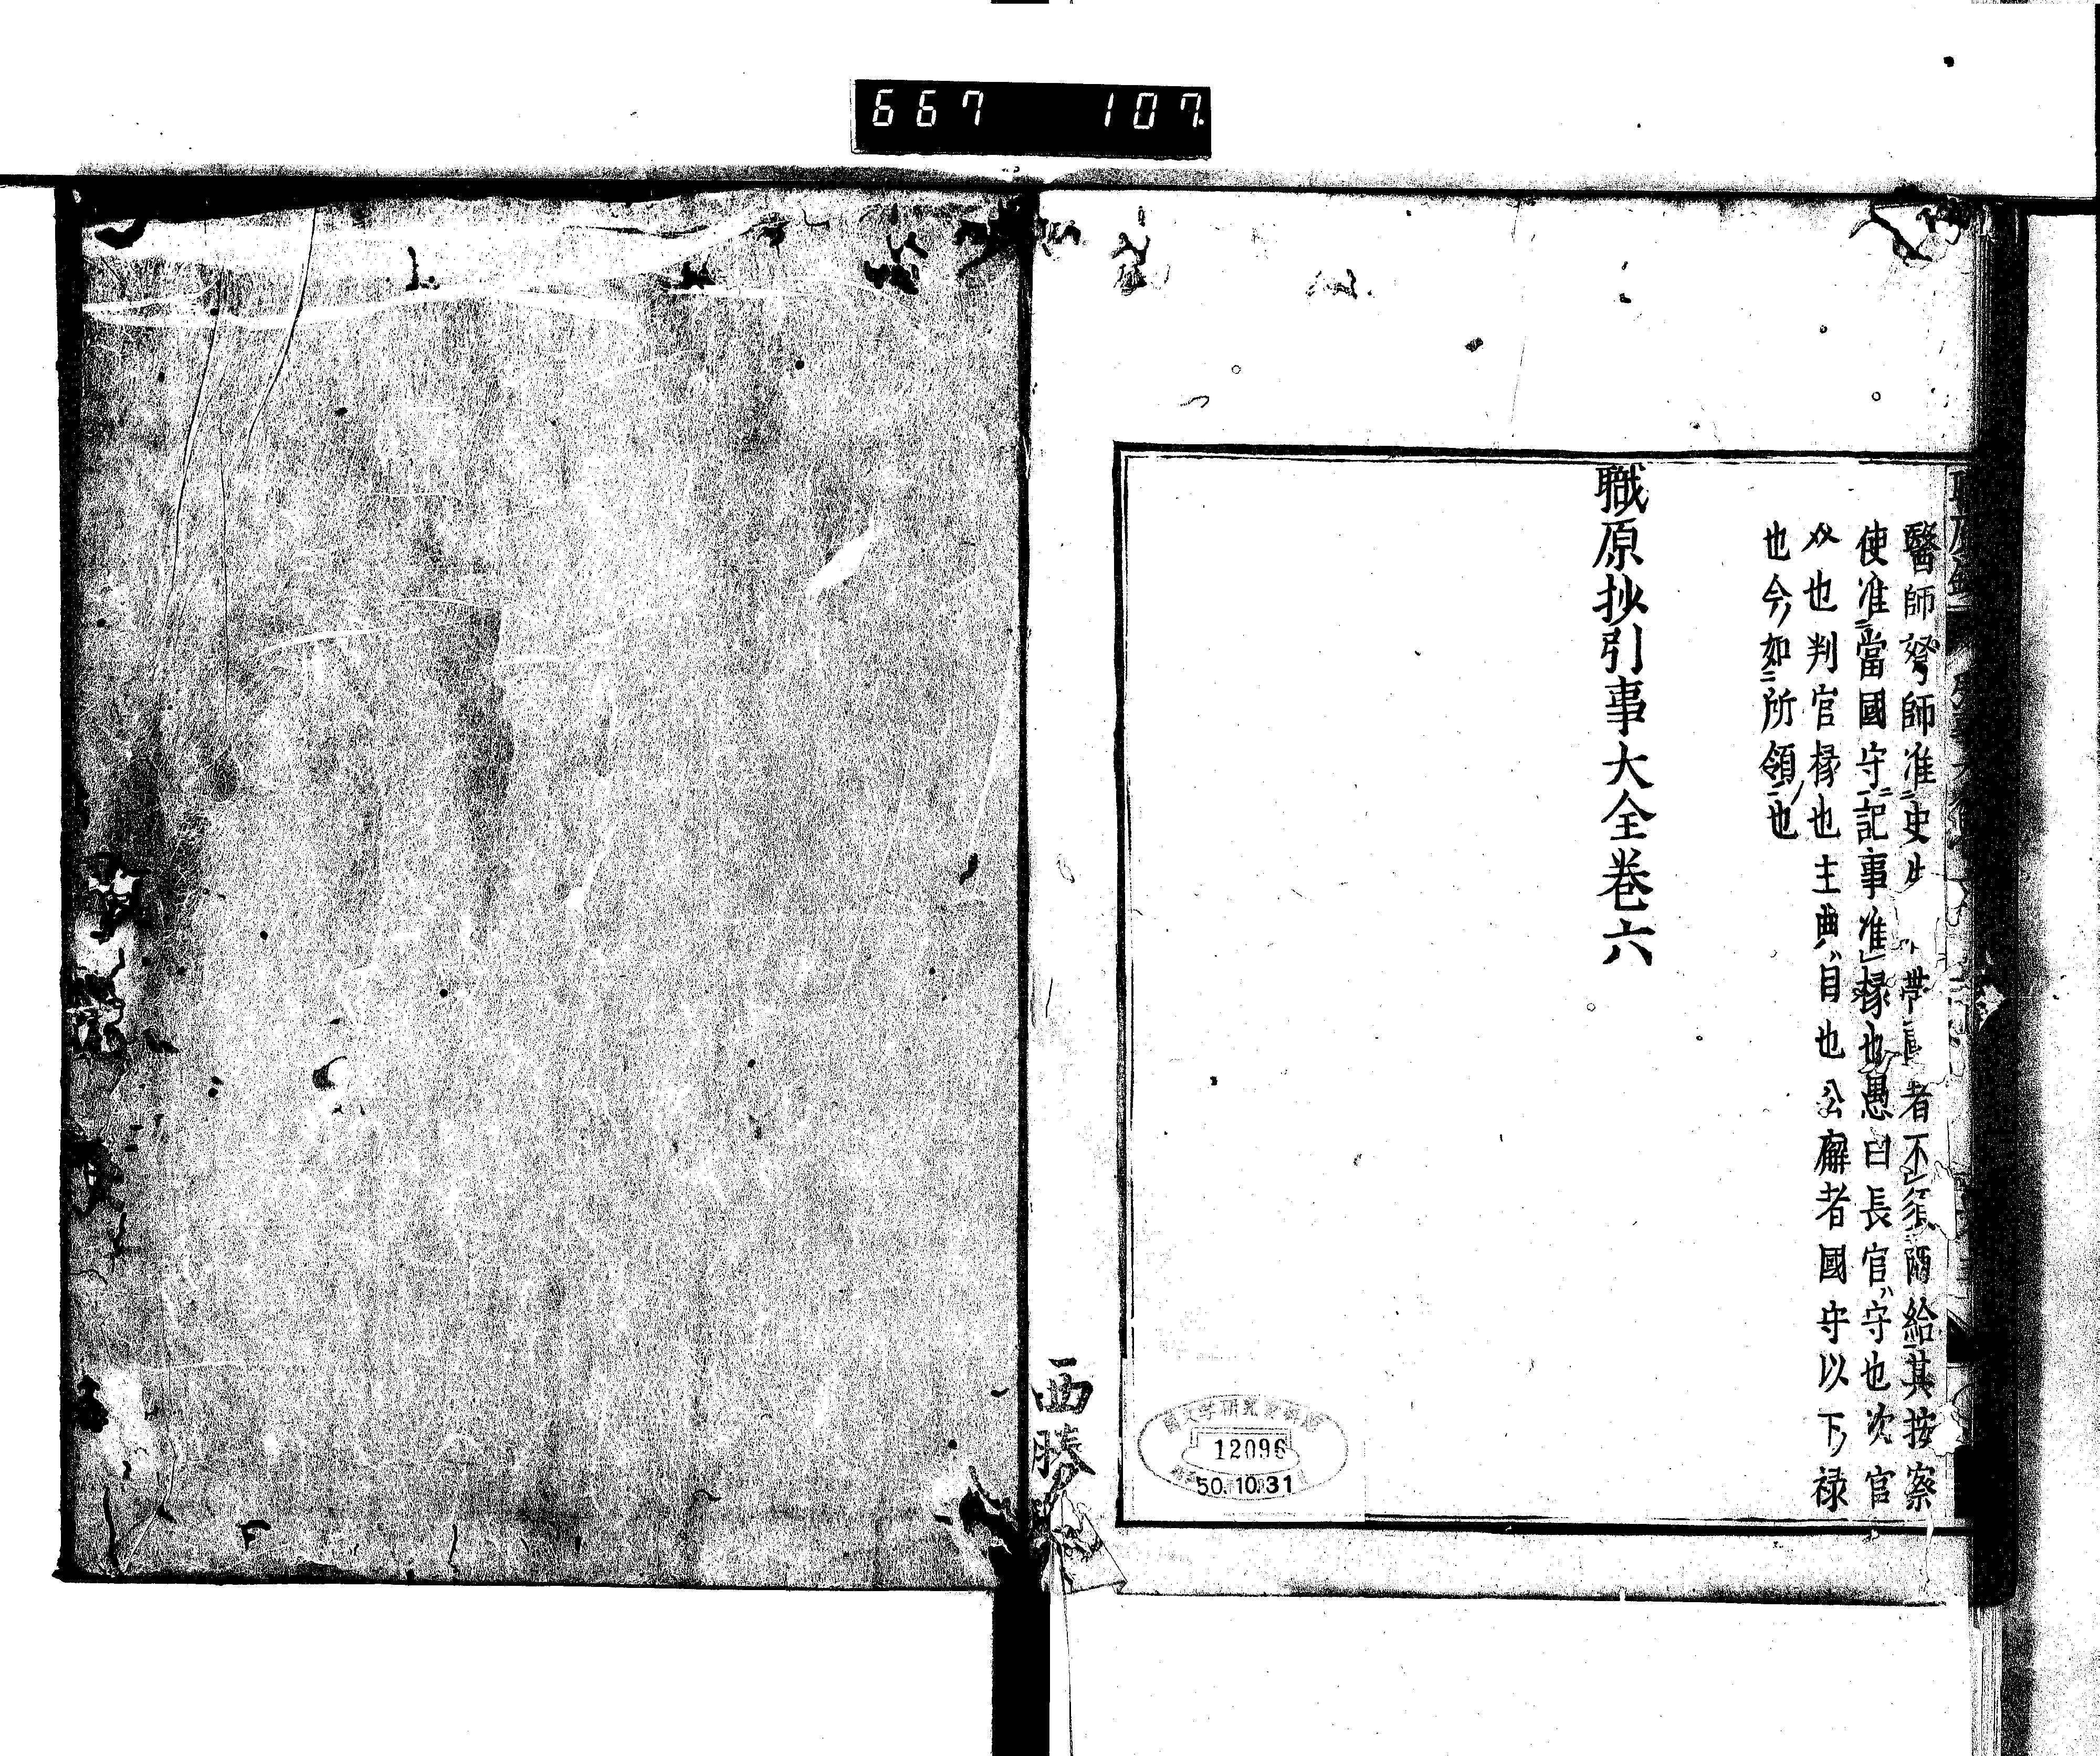 667 107
醫師弩師准史 帶 者不須 給其按察
使准當國守記事准掾也愚曰長官守也次官
也判官掾也主典目也公廨者國守以下禄
也今如所領也
職原抄引事大全巻六
12096
50.10.31
西勝